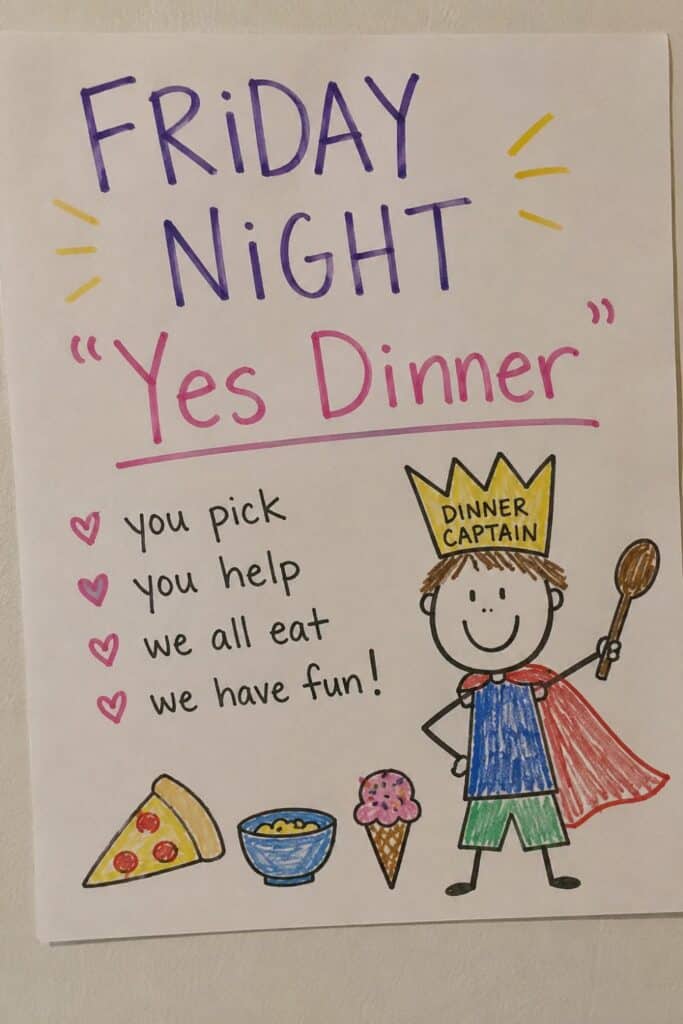 FRiDAY
NiGHT
“Yes Dinner”
you pick
you help
we all eat
we have fun!
DINNER
CAPTAIN